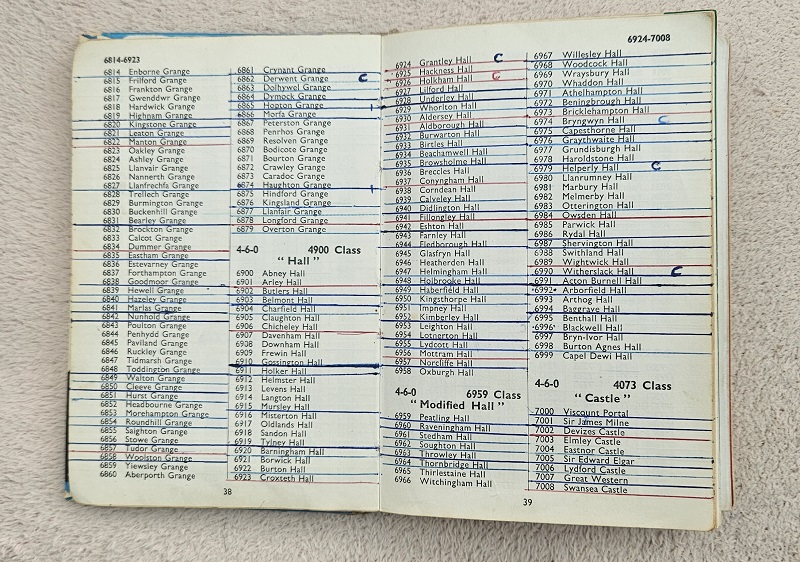 6814-6923
6814 Enborne Grange
6815 Frilford Grange
6816 Frankton Grange
6817 Gwenddwr Grange
6818 Hardwick Grange
6819 Highnam Grange
6820 Kingstone Grange
6821 Leaton Grange
6822 Manton Grange
6823 Oakley Grange
6824 Ashley Grange
6825 Llanvair Grange
6826 Nannerth Grange
6827 Llanfrecfa Grange
6828 Trellech Grange
6829 Burmington Grange
6830 Buckenhill Grange
6831 Bearley Grange
6832 Brockton Grange
6833 Calcot Grange
6834 Dummer Grange
6835 Eastham Grange
6836 Estevarney Grange
6837 Forthampton Grange
6838 Goodmoor Grange
6839 Hewell Grange
6840 Hazeley Grange
6841 Marlas Grange
6842 Nunhold Grange
6843 Poulton Grange
6844 Penhydd Grange
6845 Paviland Grange
6846 Ruckley Grange
6847 Tidmarsh Grange
6848 Toddington Grange
6849 Walton Grange
6850 Cleeve Grange
6851 Hurst Grange
6852 Headbourne Grange
6853 Morehampton Grange
6854 Roundhill Grange
6855 Saighton Grange
6856 Stowe Grange
6857 Tudor Grange
6858 Woolston Grange
6859 Yiewsley Grange
6860 Aberporth Grange
6861 Crynant Grange
6862 Derwent Grange C
6863 Dolhywel Grange
6864 Dymock Grange
6865 Hopton Grange
6866 Morfa Grange
6867 Peterston Grange
6868 Penrhos Grange
6869 Resolven Grange
6870 Bodicote Grange
6871 Bourton Grange
6872 Crawley Grange
6873 Caradoc Grange
6874 Haughton Grange
6875 Hindford Grange
6876 Kingsland Grange
6877 Llanfair Grange
6878 Longford Grange
6879 Overton Grange
4-6-0 4900 Class
"Hall"
6900 Abney Hall
6901 Arley Hall
6902 Butlers Hall
6903 Belmont Hall
6904 Charfield Hall
6905 Claughton Hall
6906 Chicheley Hall
6907 Davenham Hall
6908 Downham Hall
6909 Frewin Hall
6910 Gossington Hall
6911 Holker Hall
6912 Helmster Hall
6913 Levens Hall
6914 Langton Hall
6915 Mursley Hall
6916 Misterton Hall
6917 Oldlands Hall
6918 Sandon Hall
6919 Tylney Hall
6920 Barningham Hall
6921 Borwick Hall
6922 Burton Hall
6923 Croxteth Hall
38
6924-7008
6924 Grantley Hall C
6925 Hackness Hall
6926 Holkham Hall C
6927 Lilford Hall
6928 Underley Hall
6929 Whorlton Hall
6930 Aldersey Hall
6931 Aldborough Hall
6932 Burwarton Hall
6933 Birtles Hall
6934 Beachamwell Hall
6935 Browsholme Hall
6936 Breccles Hall
6937 Conyngham Hall
6938 Corndean Hall
6939 Calveley Hall
6940 Didlington Hall
6941 Fillongley Hall
6942 Eshton Hall
6943 Farnley Hall
6944 Fledborough Hall
6945 Glasfryn Hall
6946 Heatherden Hall
6947 Helmingham Hall
6948 Holbrooke Hall
6949 Haberfield Hall
6950 Kingsthorpe Hall
6951 Impney Hall
6952 Kimberley Hall
6953 Leighton Hall
6954 Lotherton Hall
6955 Lydcott Hall
6956 Mottram Hall
6957 Norcliffe Hall
6958 Oxburgh Hall
4-6-0 6959 Class
"Modified Hall"
6959 Peatling Hall
6960 Raveningham Hall
6961 Stedham Hall
6962 Soughton Hall
6963 Throwley Hall
6964 Thornbridge Hall
6965 Thirlestaine Hall
6966 Witchingham Hall
6967 Willesley Hall
6968 Woodcock Hall
6969 Wraysbury Hall
6970 Whaddon Hall
6971 Athelhampton Hall
6972 Beningbrough Hall
6973 Bricklehampton Hall
6974 Bryngwyn Hall C
6975 Capesthorne Hall
6976 Graythwaite Hall
6977 Grundisburgh Hall
6978 Haroldstone Hall
6979 Helperly Hall C
6980 Llanrumney Hall
6981 Marbury Hall
6982 Melmerby Hall
6983 Otterington Hall
6984 Owsden Hall
6985 Parwick Hall
6986 Rydal Hall
6987 Shervington Hall
6988 Swithland Hall
6989 Wightwick Hall
6990 Witherslack Hall C
6991 Acton Burnell Hall
6992 Arborfield Hall
6993 Arthog Hall
6994 Baggrave Hall
6995 Benthall Hall
6996 Blackwell Hall
6997 Bryn-Ivor Hall
6998 Burton Agnes Hall
6999 Capel Dewi Hall
4-6-0 4073 Class
"Castle"
7000 Viscount Portal
7001 Sir James Milne
7002 Devizes Castle
7003 Elmley Castle
7004 Eastnor Castle
7005 Sir Edward Elgar
7006 Lydford Castle
7007 Great Western
7008 Swansea Castle
39